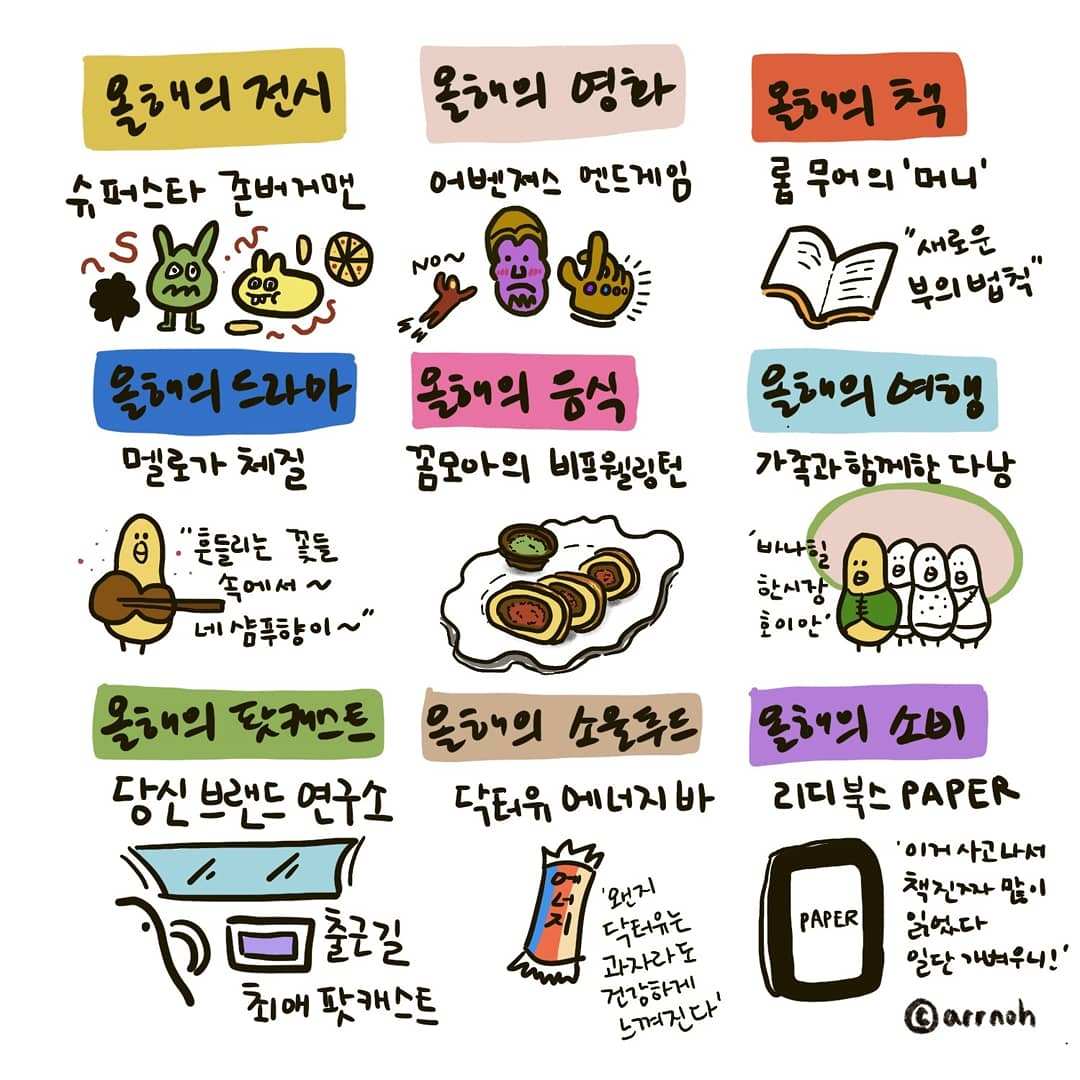 올해의 전시
슈퍼스타 존버거맨
올해의 영화
어벤져스 엔드게임
NO~
올해의 책
롭 무어의 '머니'
"새로운
부의 법칙"
올해의 드라마
멜로가 체질
"흔들리는 꽃들
속에서~
네 샴푸향이~"
올해의 음식
꼼모아의 비프웰링턴
올해의 여행
가족과 함께한 다낭
'바나힐
한시장
호이안'
올해의 팟캐스트
당신 브랜드 연구소
출근길
최애 팟캐스트
올해의 소울푸드
닥터유 에너지바
에너지
'왠지
닥터유는
과자라도
건강하게
느껴진다'
올해의 소비
리디북스 PAPER
PAPER
'이거 사고나서
책 진짜 많이
읽었다
일단 가벼우니!'
ⓒarrnoh